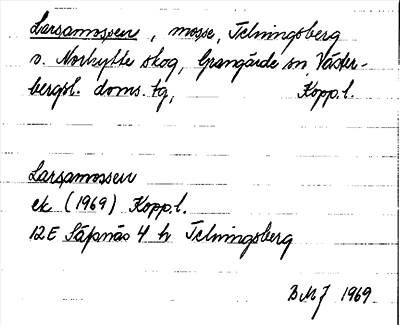 Larsamossen, mosse, Telningsberg
s. Norhytte skog, Grangärde sn, Väster-
bergsl. doms. tg, Kopp.l.
Larsamossen
ek (1969) Kopp.l.
12E Säfsnäs 4 h Telningsberg
BMJ 1969